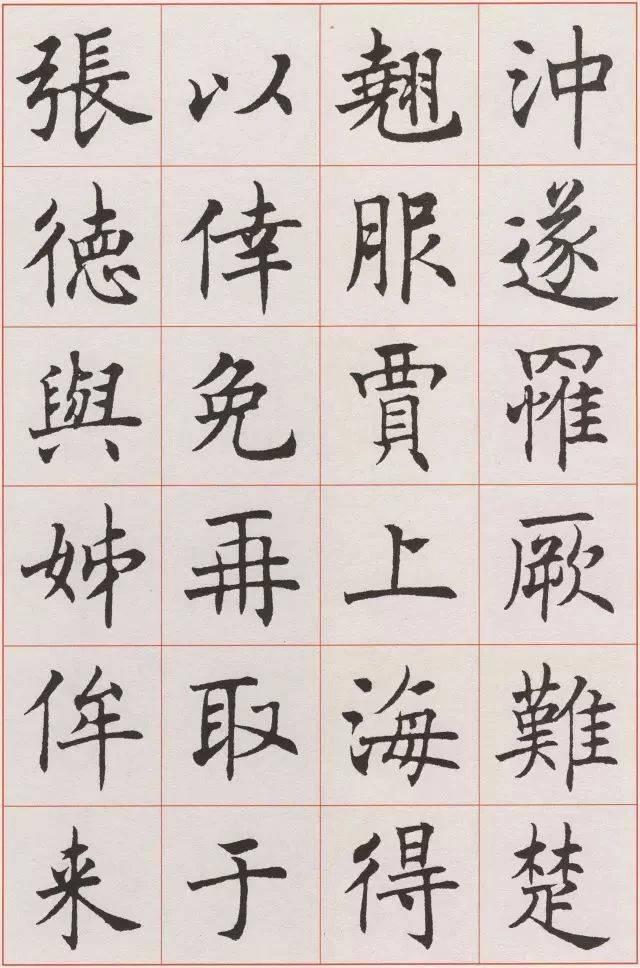 沖遂罹厥難楚
翹服賈上海得
以倖免再取于
張德與姊侔来